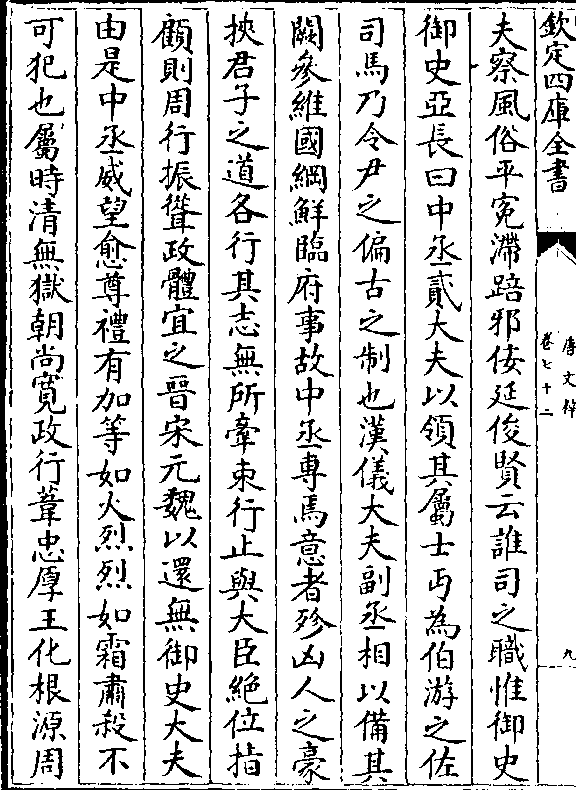 欽定四庫全書
唐文粹
卷七十二
九
夫察風俗平寃滯踣邪佞延俊賢云誰司之職惟御史
御史亞長曰中丞貳大夫以領其屬士丏為伯游之佐
司馬乃令尹之偏古之制也漢儀大夫副丞相以備其
闕參維國綱鮮臨府事故中丞專焉意者殄凶人之豪
挾君子之道各行其志無所牽束行止與大臣絶位指
顧則周行振聳政體宜之晉宋元魏以還無御史大夫
由是中丞威望愈尊禮有加等如火烈烈如霜肅殺不
可犯也屬時清無獄朝尚寛政行葦忠厚王化根源周